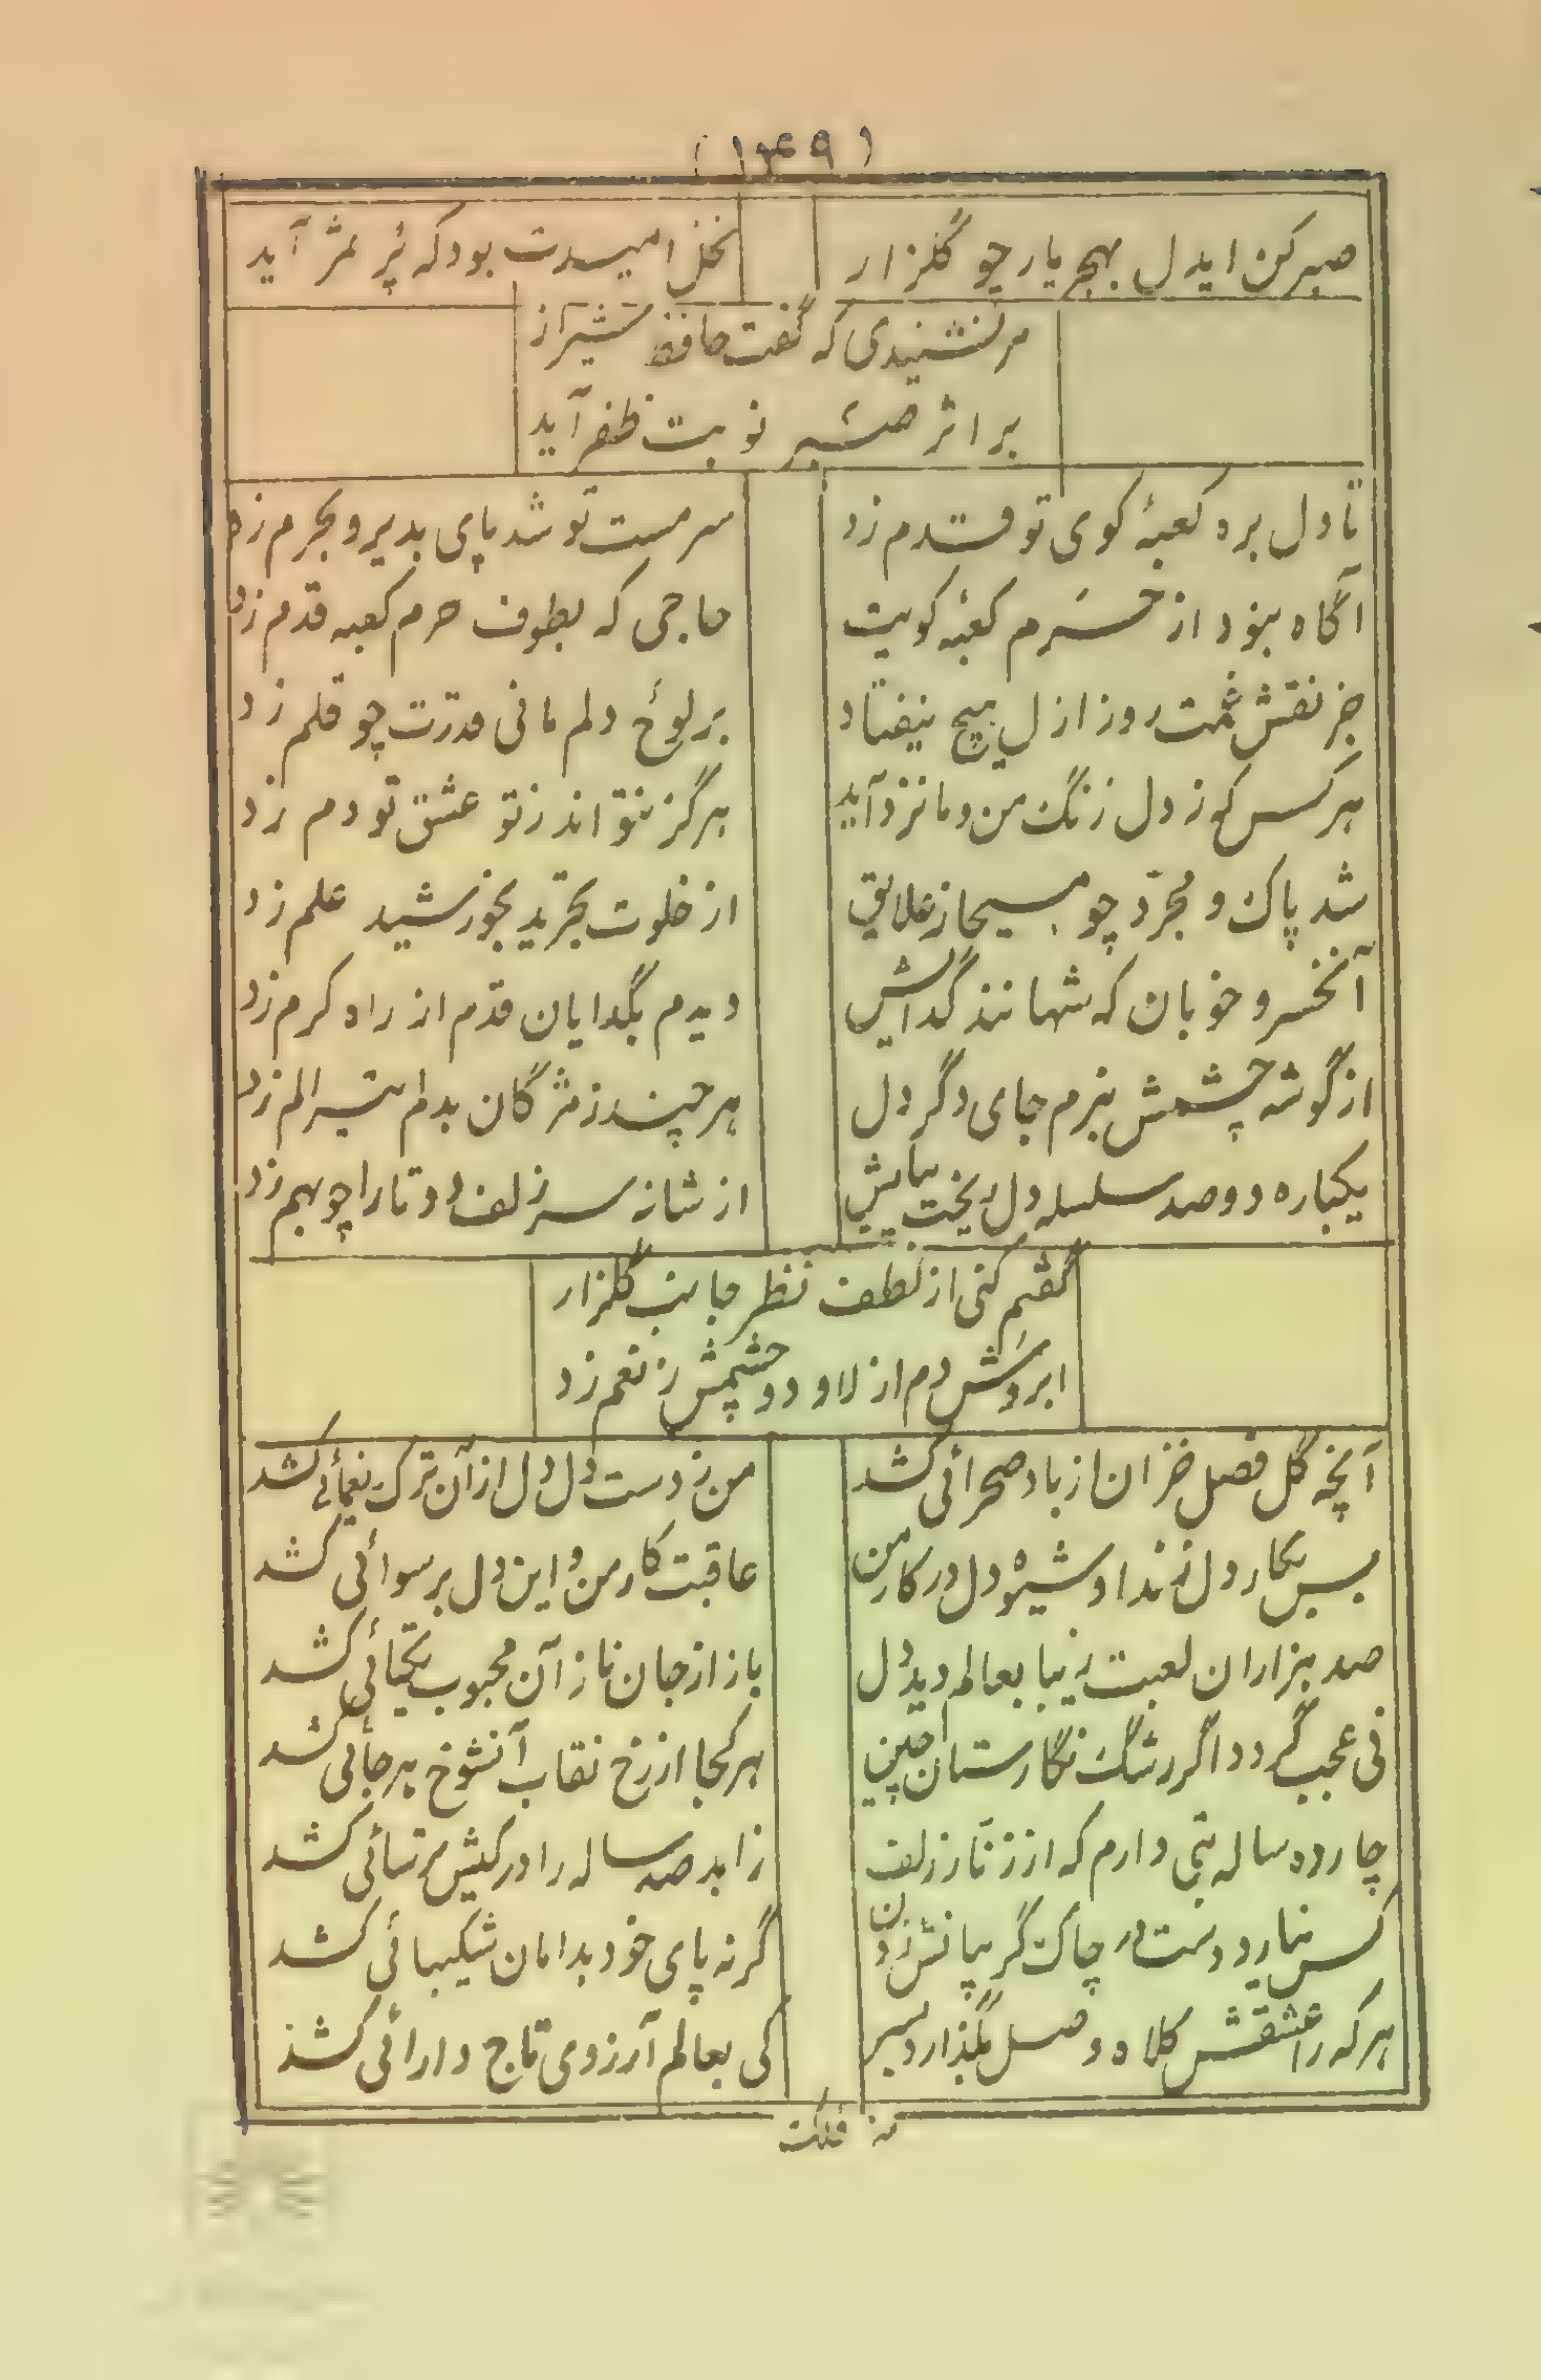 (۱۴۹)
صبر کن ایدل بهجر یار چو گلزار
نخل امیدت بود که پُر ثمر آید
مر نشنیدی که گفت حافظ شیراز
بر اثر صبر نوبت ظفر آید
تا دل بره کعبهٔ کوی تو قدم زد
سرمست تو شد پای بدیر و بحرم زد
آگاه نبود از حرم کعبهٔ کویت
حاجی که بطوف حرم کعبه قدم زد
جز نقش روز ازل هیچ نیفتاد
بر لوح دلم مانی قدرت چو قلم زد
هر کس کو ز دل زنگ من و ما نزدآید
هرگز نتواند ز تو عشق تو دم زد
شد پاک و مجرّد چو مسیحا ز علایق
از خلوت تجرید بخورشید علم زد
آنخسرو خوبان که شهانند گدایش
دیدم بگدایان قدم از راه کرم زد
از گوشه چشمش نبرم جای دگر دل
هر چند ز مژگان بدلم تیر الم زد
یکباره دو صد سلسله دل ریخت بپایش
از شانه سر زلف دو تا را چو بهم زد
گفتم کنی از لطف نظر جانب گلزار
ابروش دم از لا و دو چشمش ز نعم زد
آنچه گل فصل خزان از باد صحرائی کشد
من ز دست دل دل از آن ترک یغمائی کشد
بس بکار دل زند او شیوه دل در کار من
عاقبت کار من و این دل برسوائی کشد
صد هزاران لعبت زیبا بعالم دید دل
باز از جان ناز آن محبوب یکتائی کشد
نی عجب گردد اگر رشگ نگارستان چین
هر کجا از رخ نقاب آنشوخ هرجائی کشد
چارده ساله بتی دارم که از زنّار زلف
زاهد صد ساله را در کیش ترسائی کشد
کس نیارد دست در چاک گریبانش زدن
گر نه پای خود بدامان شکیبائی کشد
هر که را عشقش کلاه وصل بگذارد بسر
کی بعالم آرزوی تاج دارائی کشد